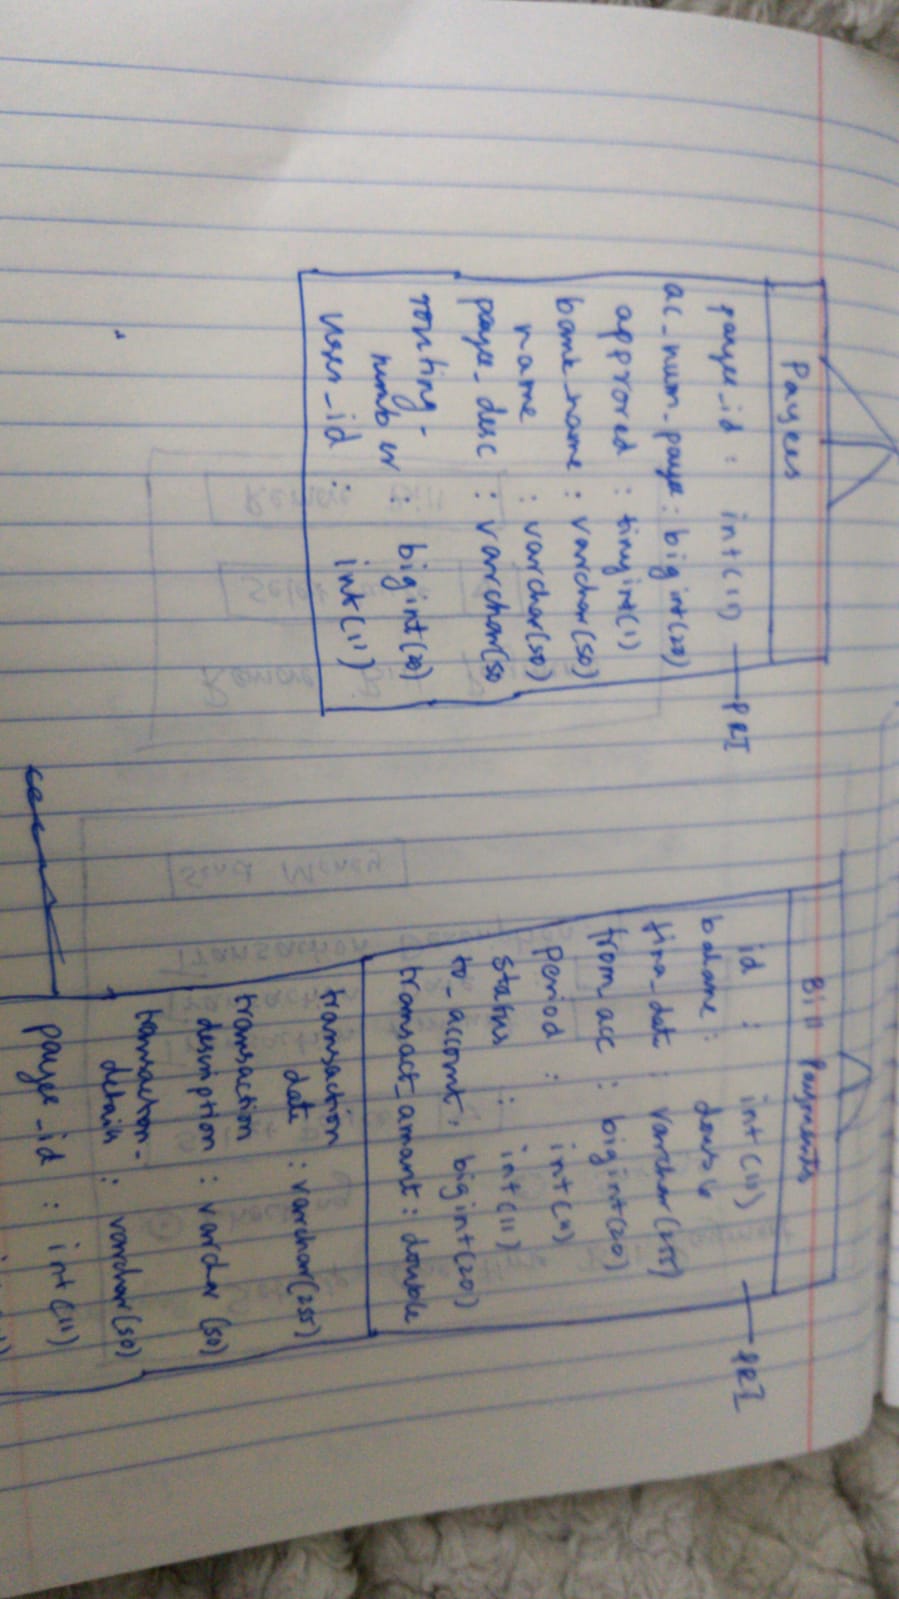 Payees
payee_id : int(11) PRI
ac_num_paye : bigint(20)
approved : tinyint(1)
bank_name : varchar(50)
name : varchar(50)
payee_desc : varchar(50
routing_
number : bigint(20)
user_id : int(11)
Bill Payments
id : int(11) PRI
balane : double
fina_date : varchar(255)
from_acc : bigint(20)
period : int(11)
status : int(11)
to_account : bigint(20)
transact_amant : double
transaction
date : varchar(255)
transaction
description : varchar (50)
transaction_
details : varchar(50)
payee_id : int(11)